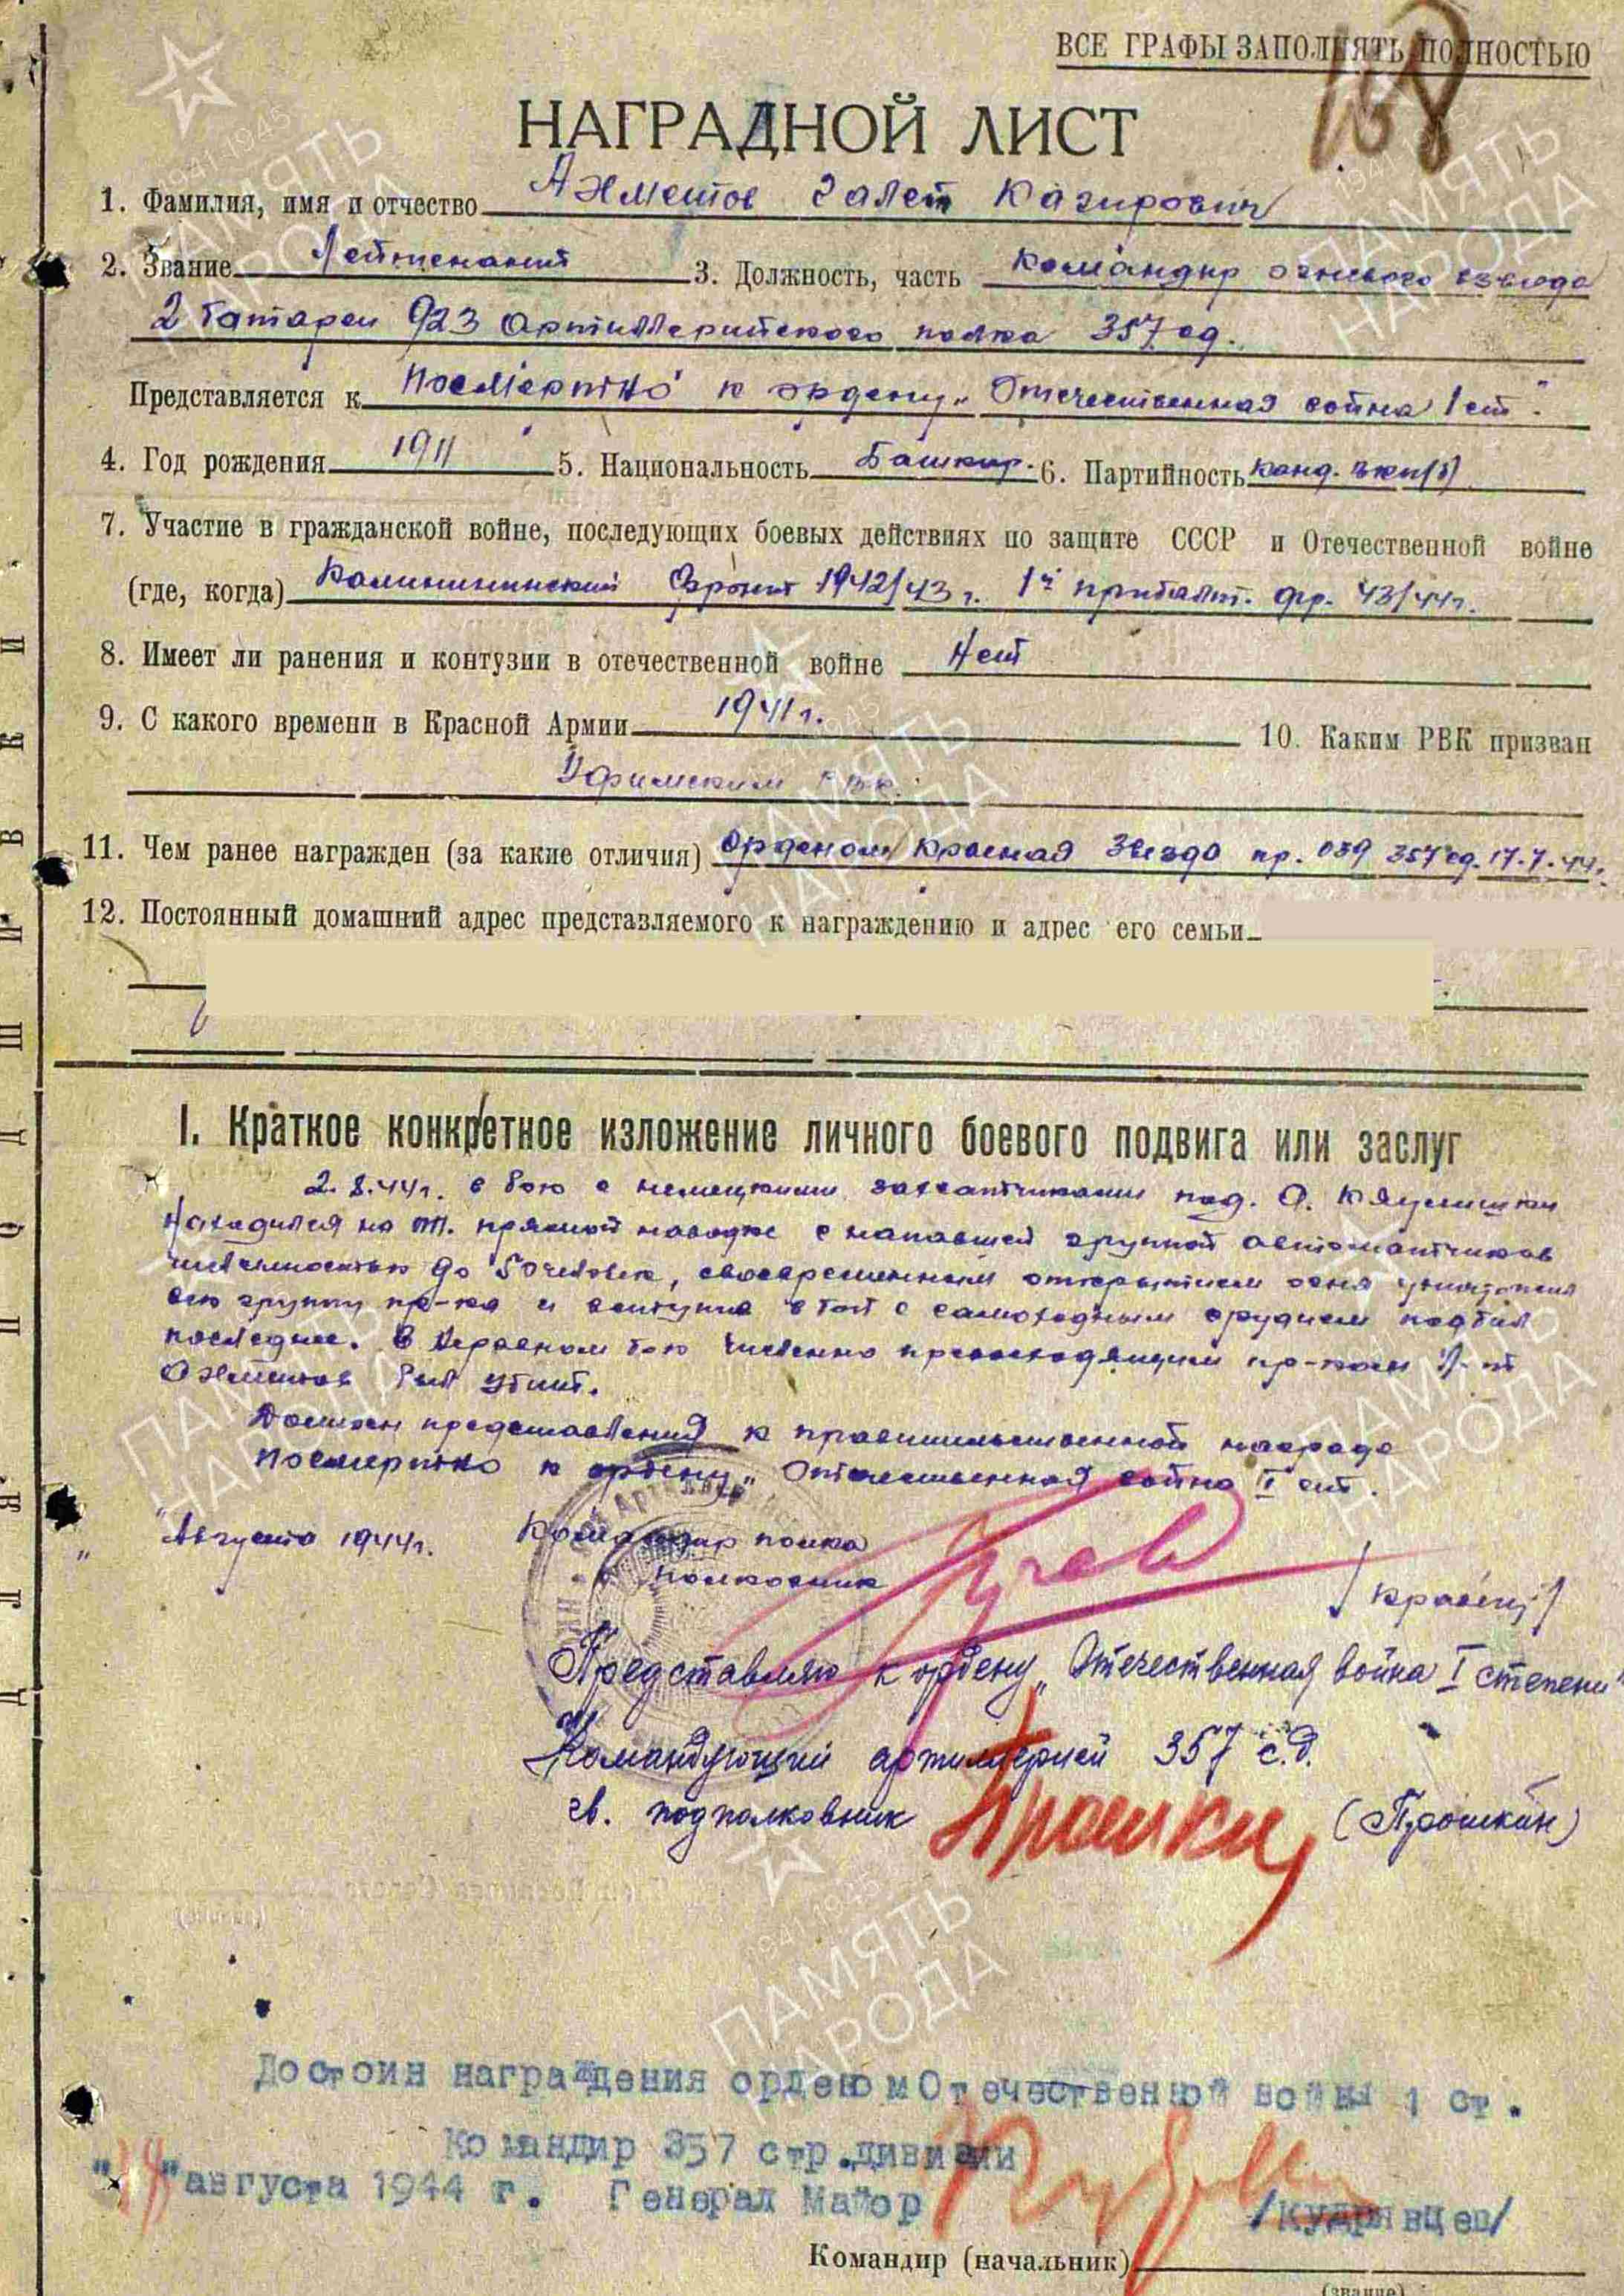 ВСЕ ГРАФЫ ЗАПОЛНЯТЬ ПОЛНОСТЬЮ
НАГРАДНОЙ ЛИСТ
1. Фамилия, имя и отчество Ахметов Галет Кагирович
2. Звание Лейтенант 3. Должность, часть командир огневого взвода
2 батареи 923 Артиллерийского полка 357 сд.
Представляется к Посмертно к ордену „Отечественная война 1 ст".
4. Год рождения 1911 5. Национальность Башкир. 6. Партийность канд. вкп(б)
7. Участие в гражданской войне, последующих боевых действиях по защите СССР и Отечественной войне
(где, когда) Калининский Фронт 1942/43 г. 1й прибалт. фр. 43/44г.
8. Имеет ли ранения и контузии в отечественной войне Нет
9. С какого времени в Красной Армии 1941г. 10. Каким РВК призван
Уфимским РВК.
11. Чем ранее награжден (за какие отличия) Орденом Красная Звезда пр. 039 357 сд. 17.7.44г.
12. Постоянный домашний адрес представляемого к награждению и адрес его семьи
I. Краткое конкретное изложение личного боевого подвига или заслуг
2.8.44г. в бою с немецкими захватчиками под.
Находился на прямой наводке с напавшей группой автоматчиков
численностью до 50 человек, своевременным открытием огня уничтожил
эту группу пр-ка и вступив в бой с самоходным орудием подбил
последнее. В неравном бою численно превосходящим пр-ком л-т
Ахметов был убит.
Должен представления к правительственной награде
Посмертно к ордену „Отечественная война I ст.
" Августа 1944г. Командир полка
полковник /Кравец/
Представляю к ордену „Отечественная война I степени"
Командующий артиллерией 357 с.д.
гв. подполковник Прошкин (Прошкин)
Достоин награждения орденом Отечественной войны 1 ст.
Командир 357 стр.дивизии
" "августа 1944 г. Генерал Майор /Кудрявцев/
Командир (начальник)
(звание)
1941-1945
ПАМЯТЬ
НАРОДА